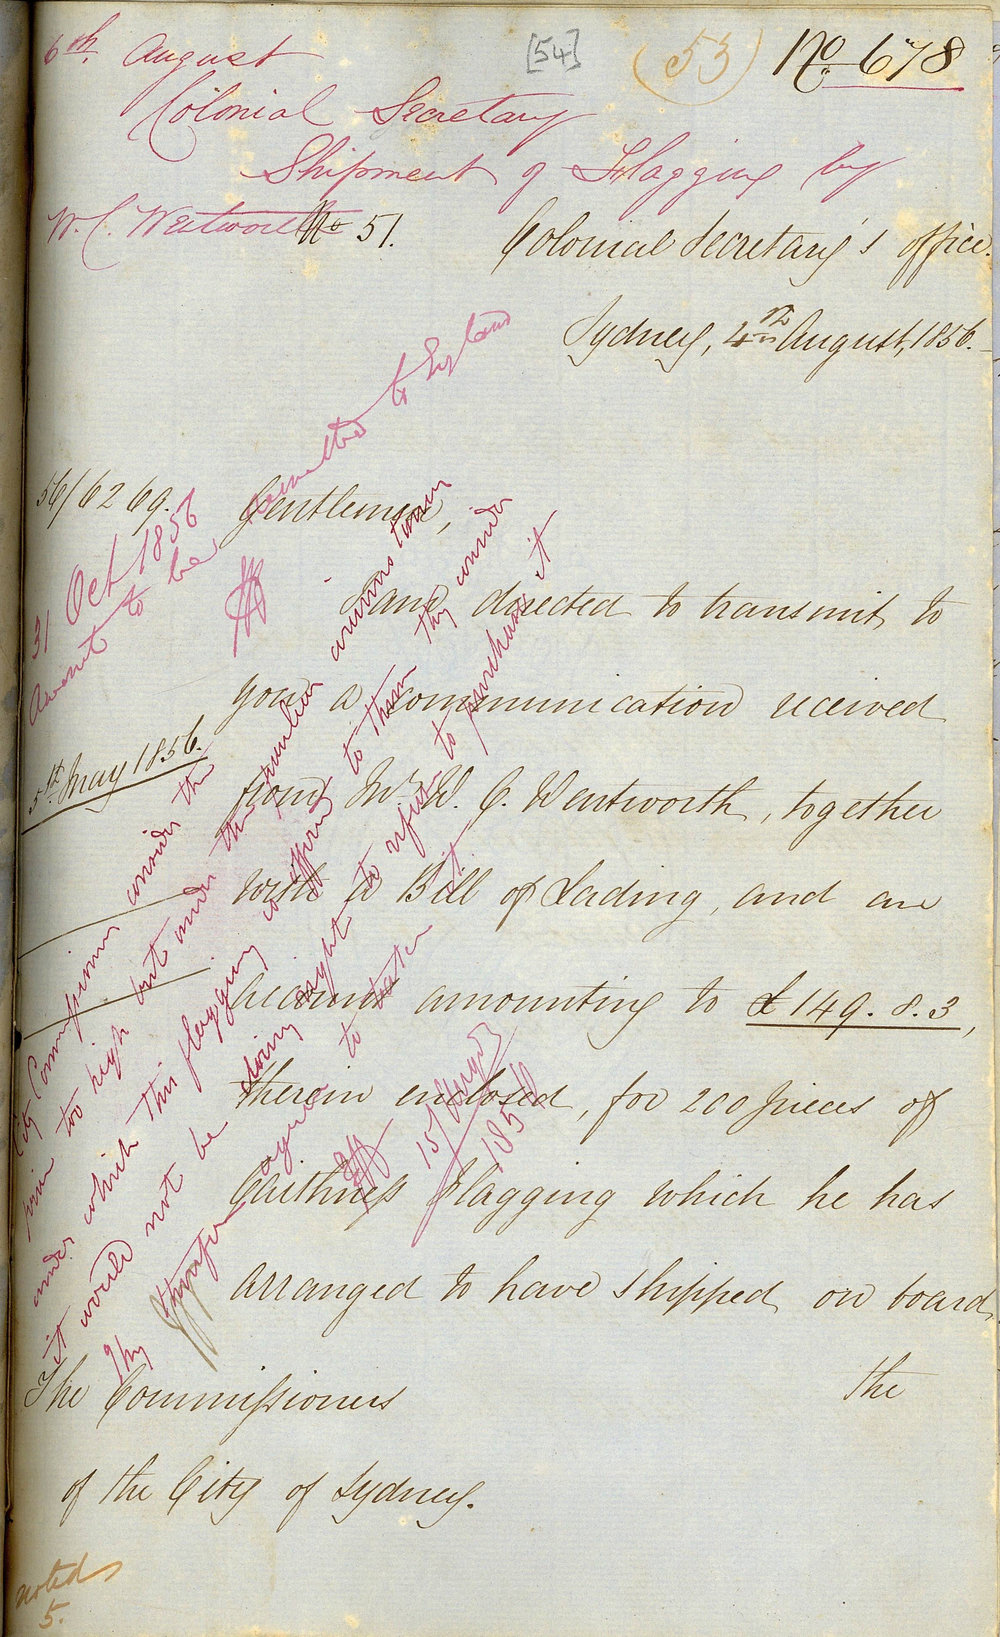 6th. August
[54]
(53)
No. 678
Colonial Secretary
Shipment of Flagging by
W. C. Wentworth
No 51.
Colonial Secretary's office.
Sydney, 4th August, 1856.
56/6269.
Gentlemen,
I am directed to transmit to
you a communication received
5th. May 1856.
from Mr. W. C. Wentworth, together
with a Bill of Lading, and an
account amounting to £149. 8. 3,
therein enclosed, for 200 pieces of
Caithness Flagging which he has
arranged to have shipped on board
the
The Commissioners
of the City of Sydney.
31 Oct 1856
Amount to be remitted to England
City Commissioners consider the
price too high but under the peculiar circumstances
under which this flagging is offered to them they consider
it would not be doing right to refuse to purchase it
They therefore agree to take it
15/Augt
1856
noted
5.